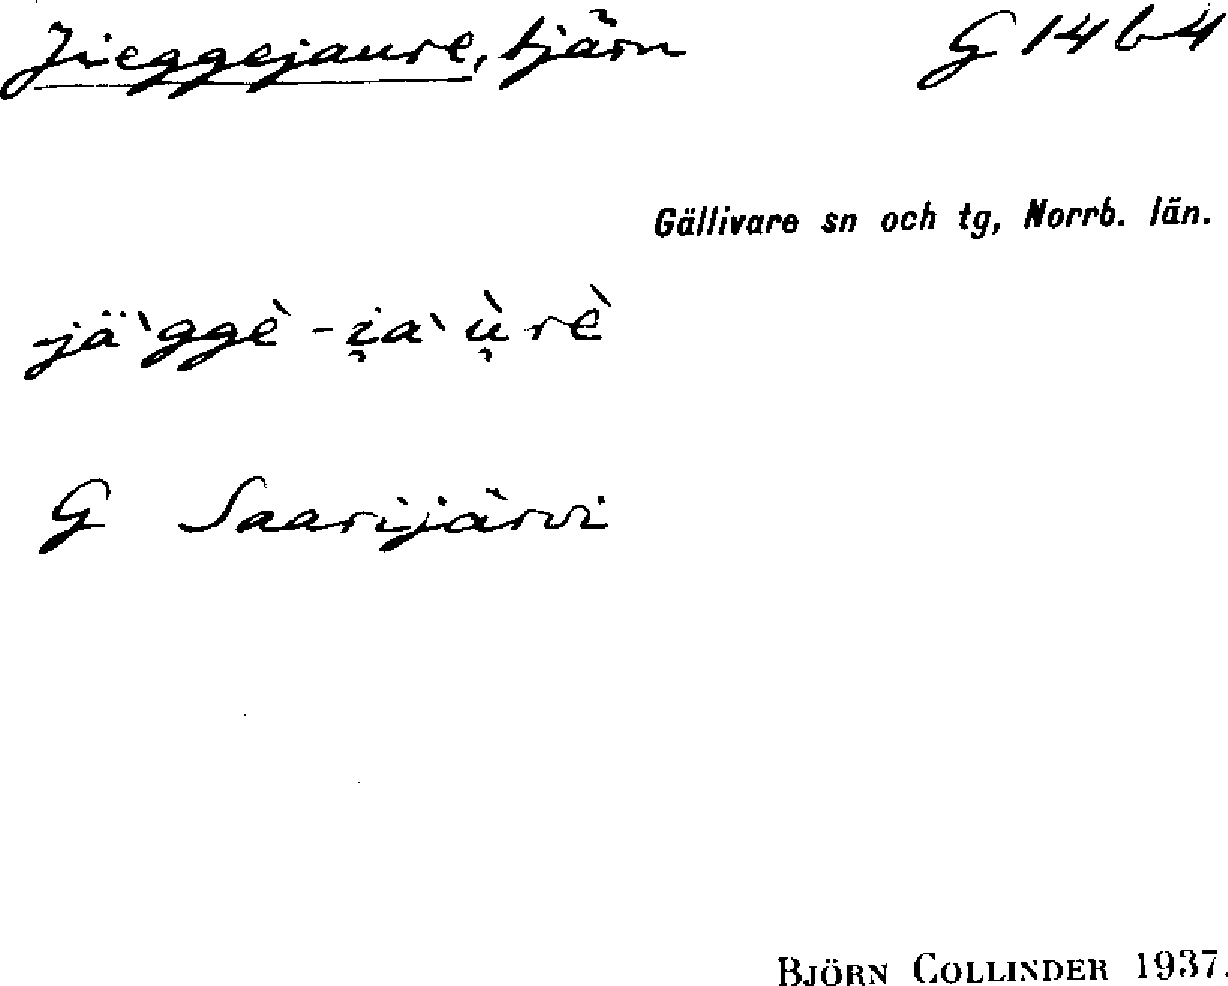 Jieggejaure, tjärn G 14 b 4
Gällivare sn och tg, Norrb. län.
jä`ggè - i̯a`ù̯rè
G Saarijärvi
BJÖRN COLLINDER 1937.